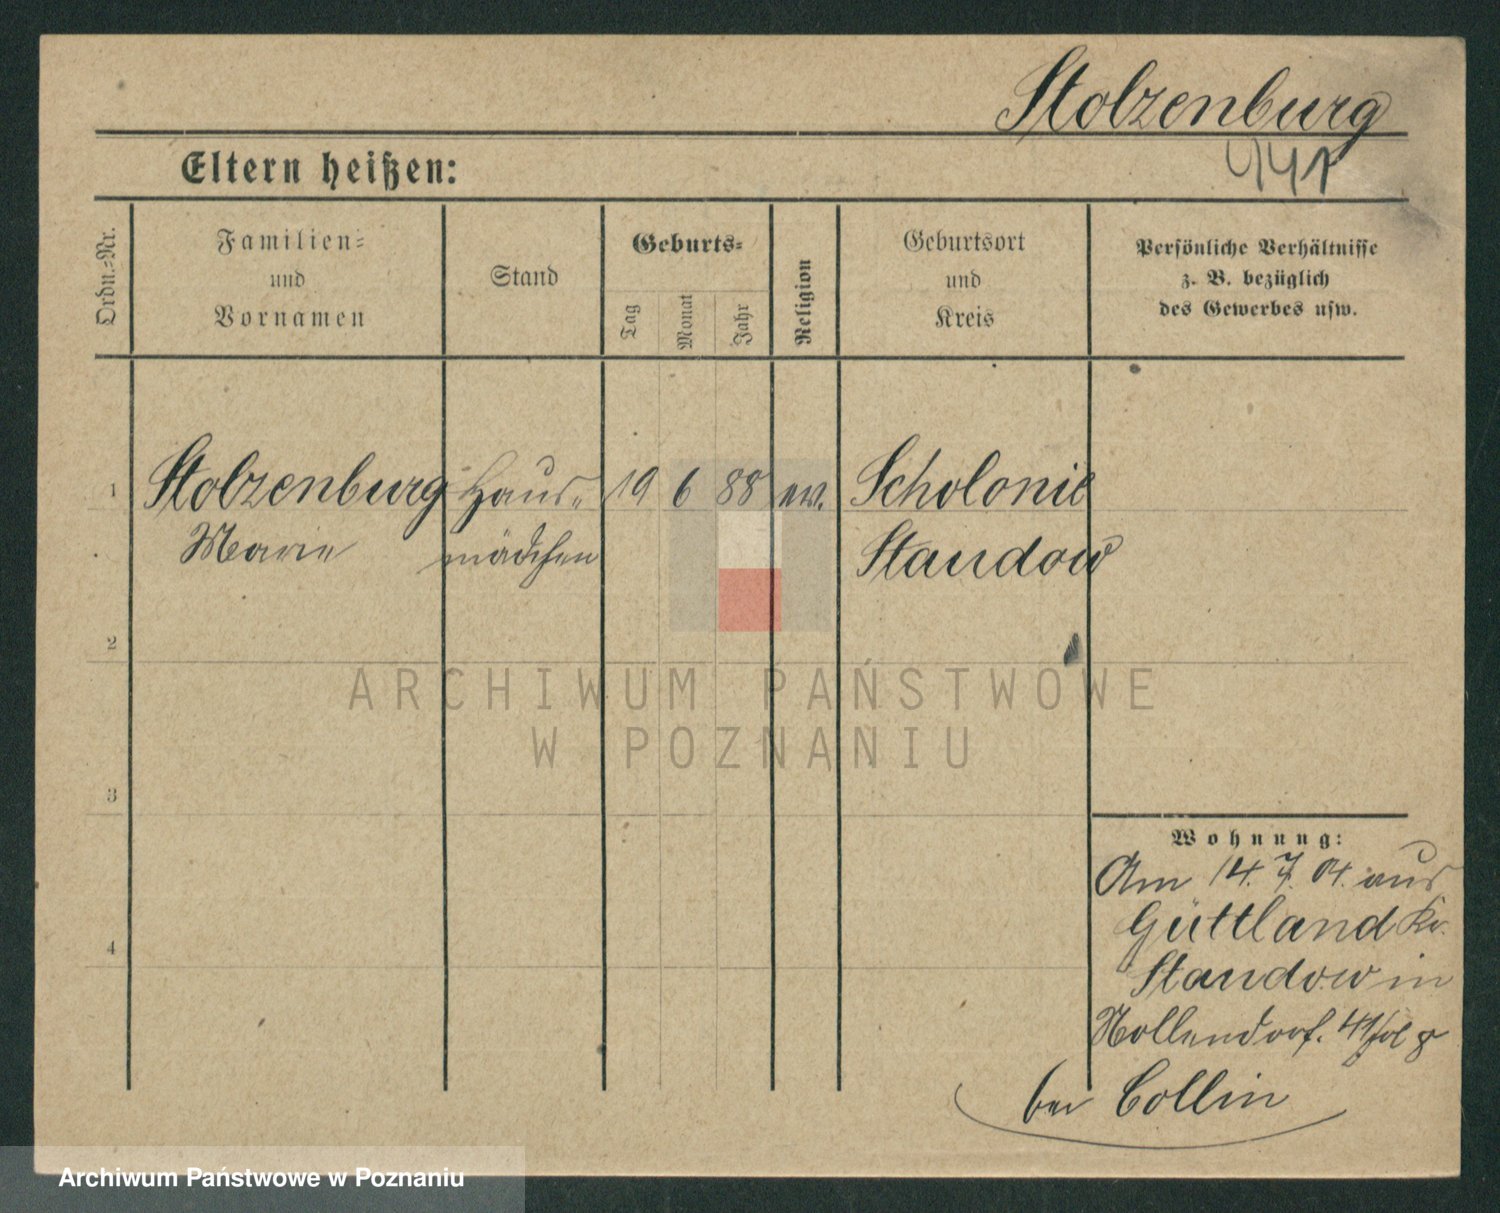 Stolzenburg
Eltern heißen:
Ordn.-Nr.
Familien-
und
Vornamen
Stand
Geburts-
Tag
Monat
Jahr
Religion
Geburtsort
und
Kreis
Persönliche Verhältnisse
z. B. bezüglich
des Gewerbes usw.
1 Stolzenburg Haus- 19 6 88 ev. Scholonie
Marie mädchen Standow
2
3
4
Wohnung:
Am 14. 7. 04. aus
Güttland Kr.
Standow in
Nollendorf. 41
bei Collin
ARCHIWUM PAŃSTWOWE
W POZNANIU
Archiwum Państwowe w Poznaniu